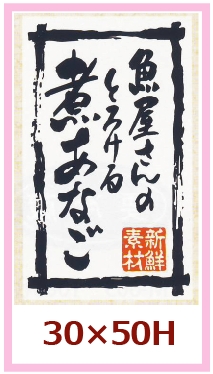 魚屋さんの
とろける
煮あなご
新鮮
素材
30×50H